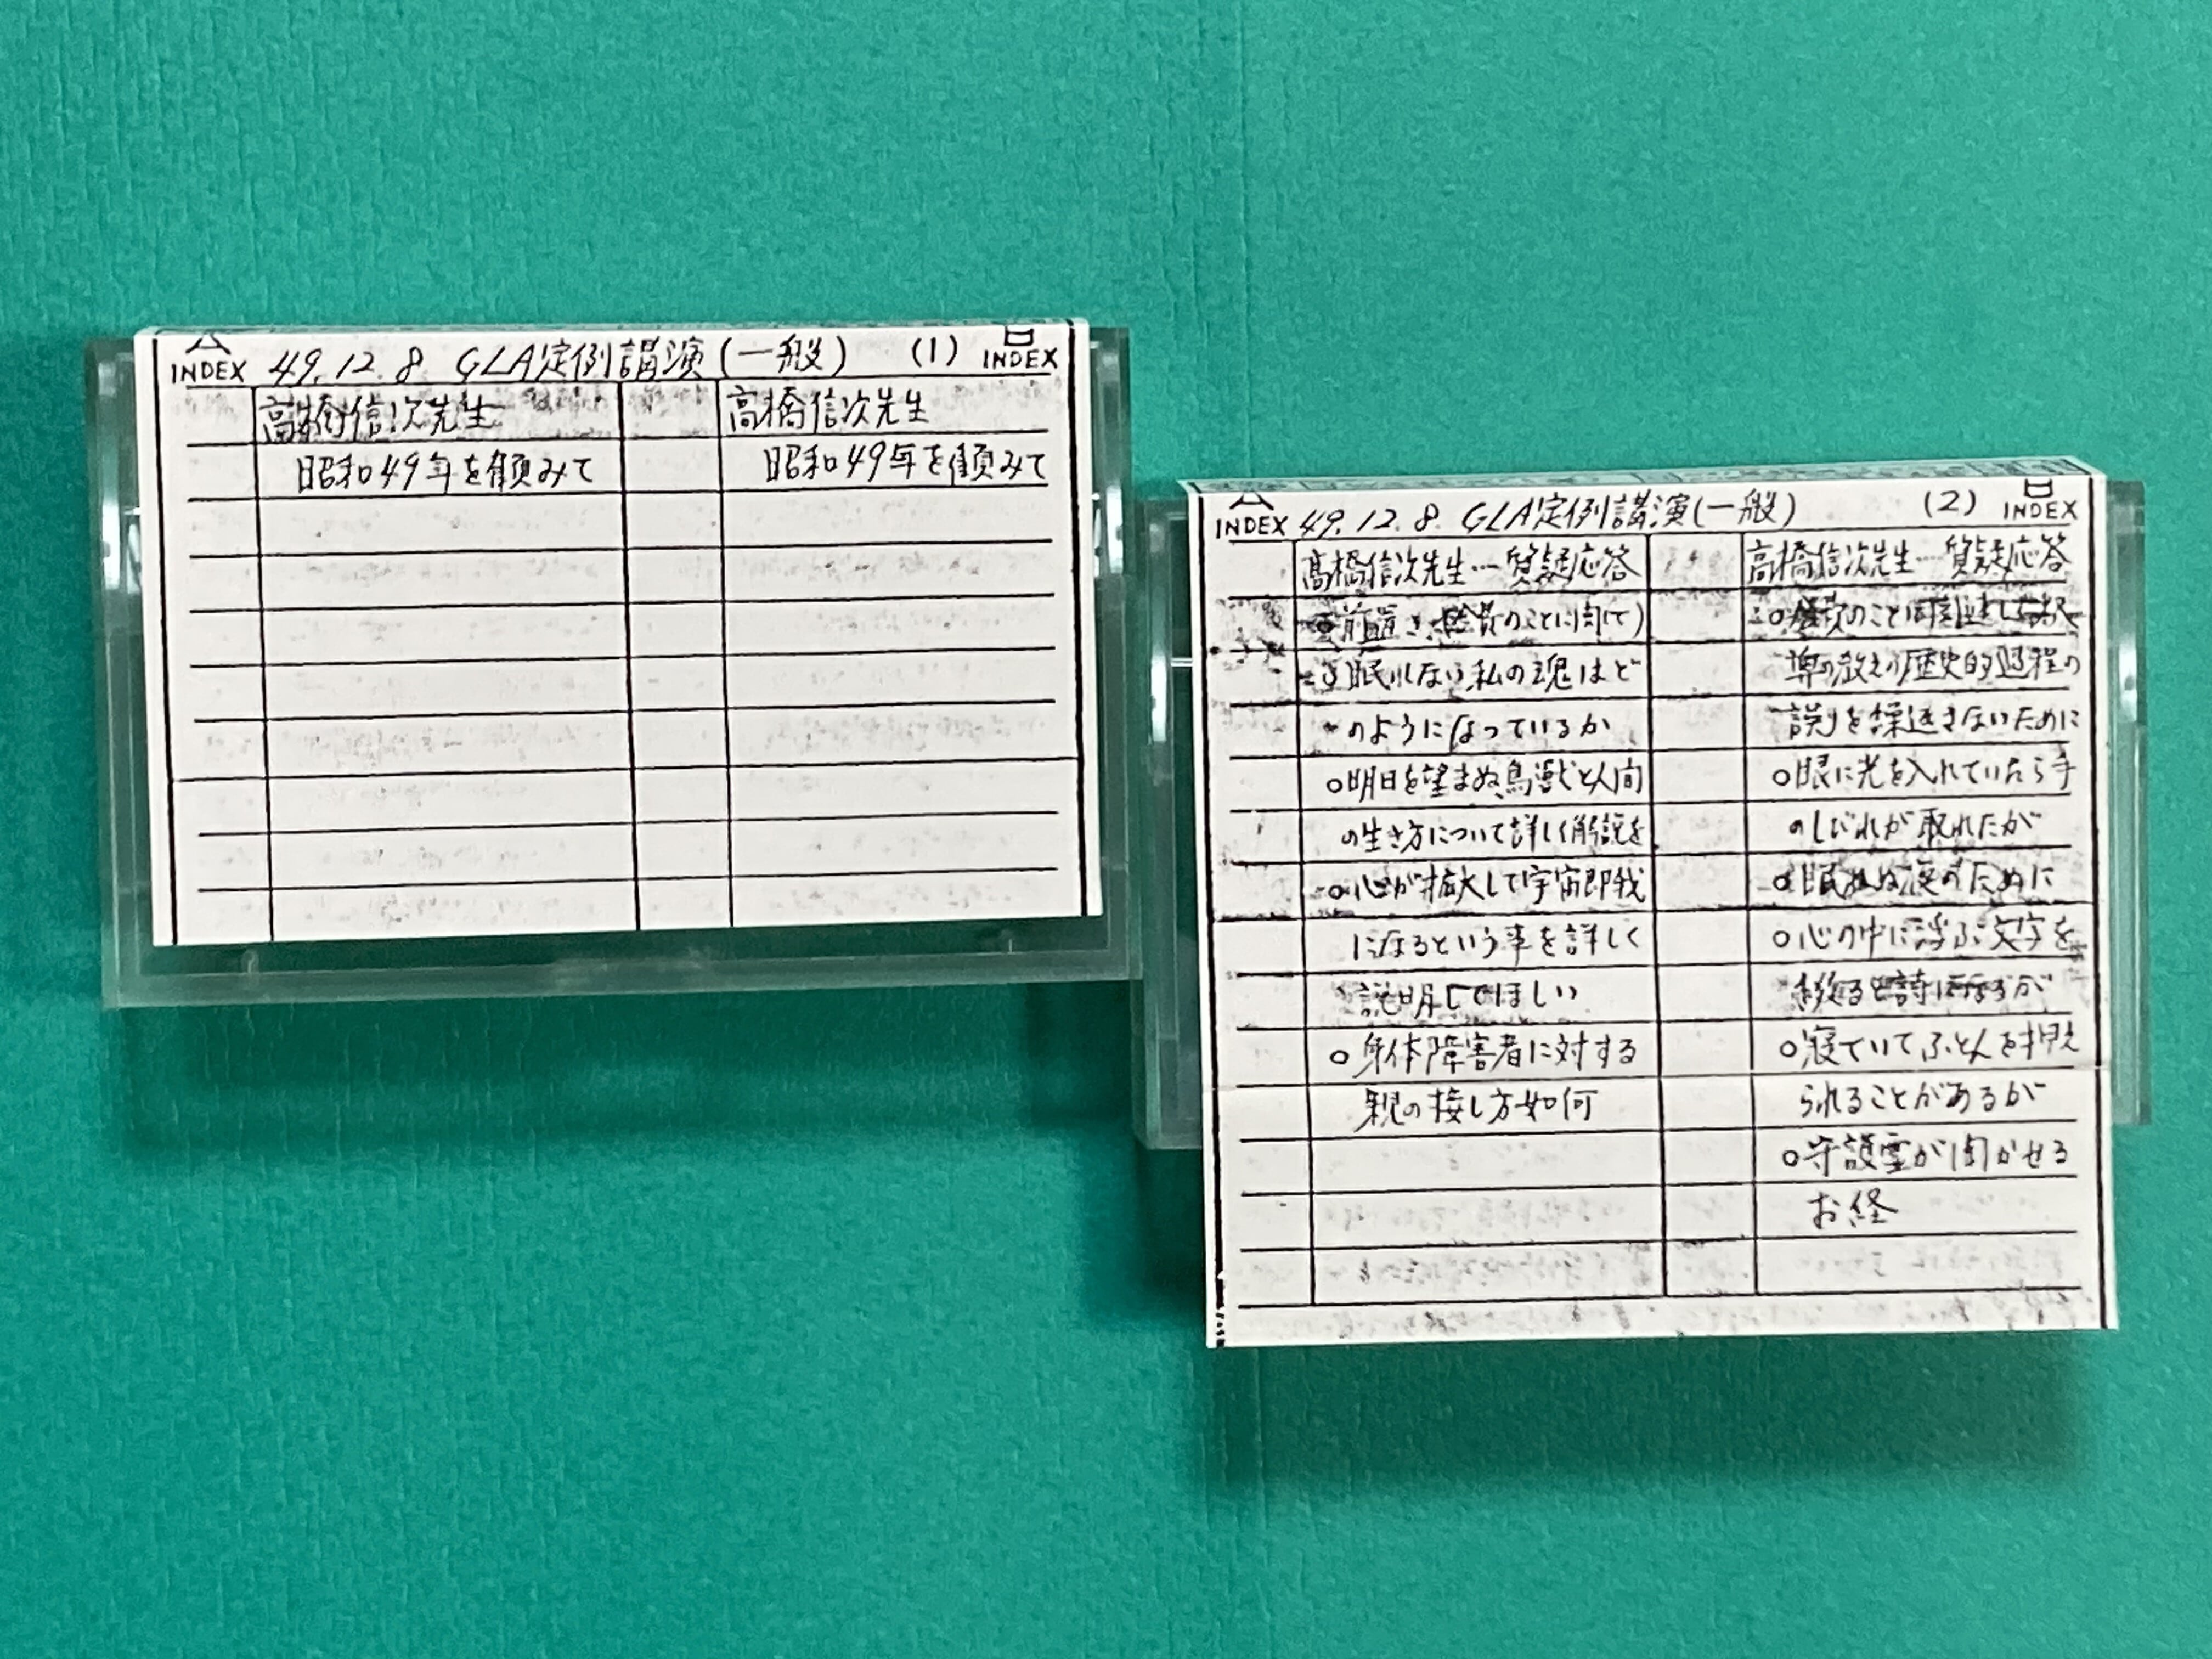 A INDEX 49.12.8 GLA定例講演(一般) (1) B INDEX
高橋信次先生
昭和49年を顧みて
高橋信次先生
昭和49年を顧みて
A INDEX 49.12.8 GLA定例講演(一般) (2) B INDEX
高橋信次先生…質疑応答
のことに関して)
眠れない私の魂はど
のようになっているか
○明日を望まぬ鳥獣と人間
の生き方について詳しく解説を
○心が拡大して宇宙即我
になるという事を詳しく
説明してほしい
○身体障害者に対する
親の接し方如何
高橋信次先生…質疑応答
のこと
教えの歴史的過程の
誤りを繰返さないために
○眼に光を入れていたら手
のしびれが取れたが
○眠れぬ夜のために
○心の中に浮ぶ文字を
綴ると詩になるが
○寝ていてふとんを押え
られることがあるが
○守護霊が聞かせる
お経